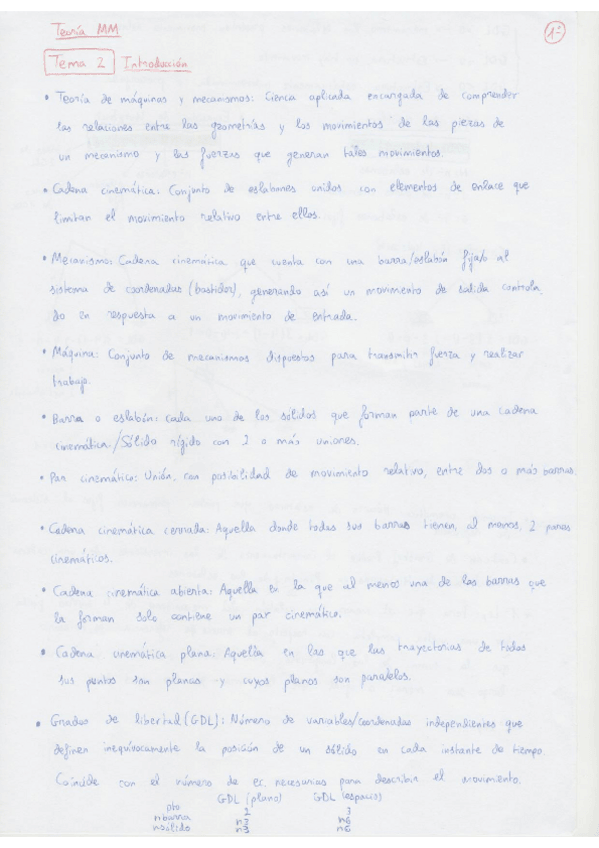 Teoría MM
1-
Tema 2 Introducción
• Teoría de máquinas y mecanismos: Cienca aplicada encargada de comprender
las relaciones entre las geometrías y los movimientos de las piezas de
un mecanismo y las fuerzas que generan tales movimientos.
• Cadena cinemática: Conjunto de eslabones unidos con elementos de enlace que
limitan el movimiento relativo entre ellos.
• Mecanismo: Cadena cinemática que cuenta con una barra/eslabón fija/o al
sistema de coordenadas (bastidor), generando así un movimento de salida controla
do en respuesta a un movimiento de entrada.
• Máquina: Conjunto de mecanismos dispuestos para transmitir fuerza y realizar
trabajo.
• Barra o eslabón: Cada uno de los solidos que forman parte de una cadena
cinemática./Sólido rígido con 2 o más uniones.
• Par cinemático: Unión, con posibilidad de movimiento relativo, entre dos o más barras
• Cadena cinemática cerrada: Aquella donde todas sus barras tienen, al menos, 2 pares
cinemáticos.
• Cadena cinemática abierta: Aquella en la que al menos una de las barras que
la forman solo contiene un par cinemático.
• Cadena cinemática plana: Aquella en las que las trayectorias de todos
sus puntos son planas y cuyos planos son paralelos.
• Grados de libertad (GDL): Número de variables/coordenadas independientes que
definen inequívocamente la posición de un sólido en cada instante de tiempo.
Coincide con el número de ec. necesarias para describir el movimiento.
GDL (plano) GDL (espacio)
pto 2 3
nbarra n3 n6
nsólido n3 n6